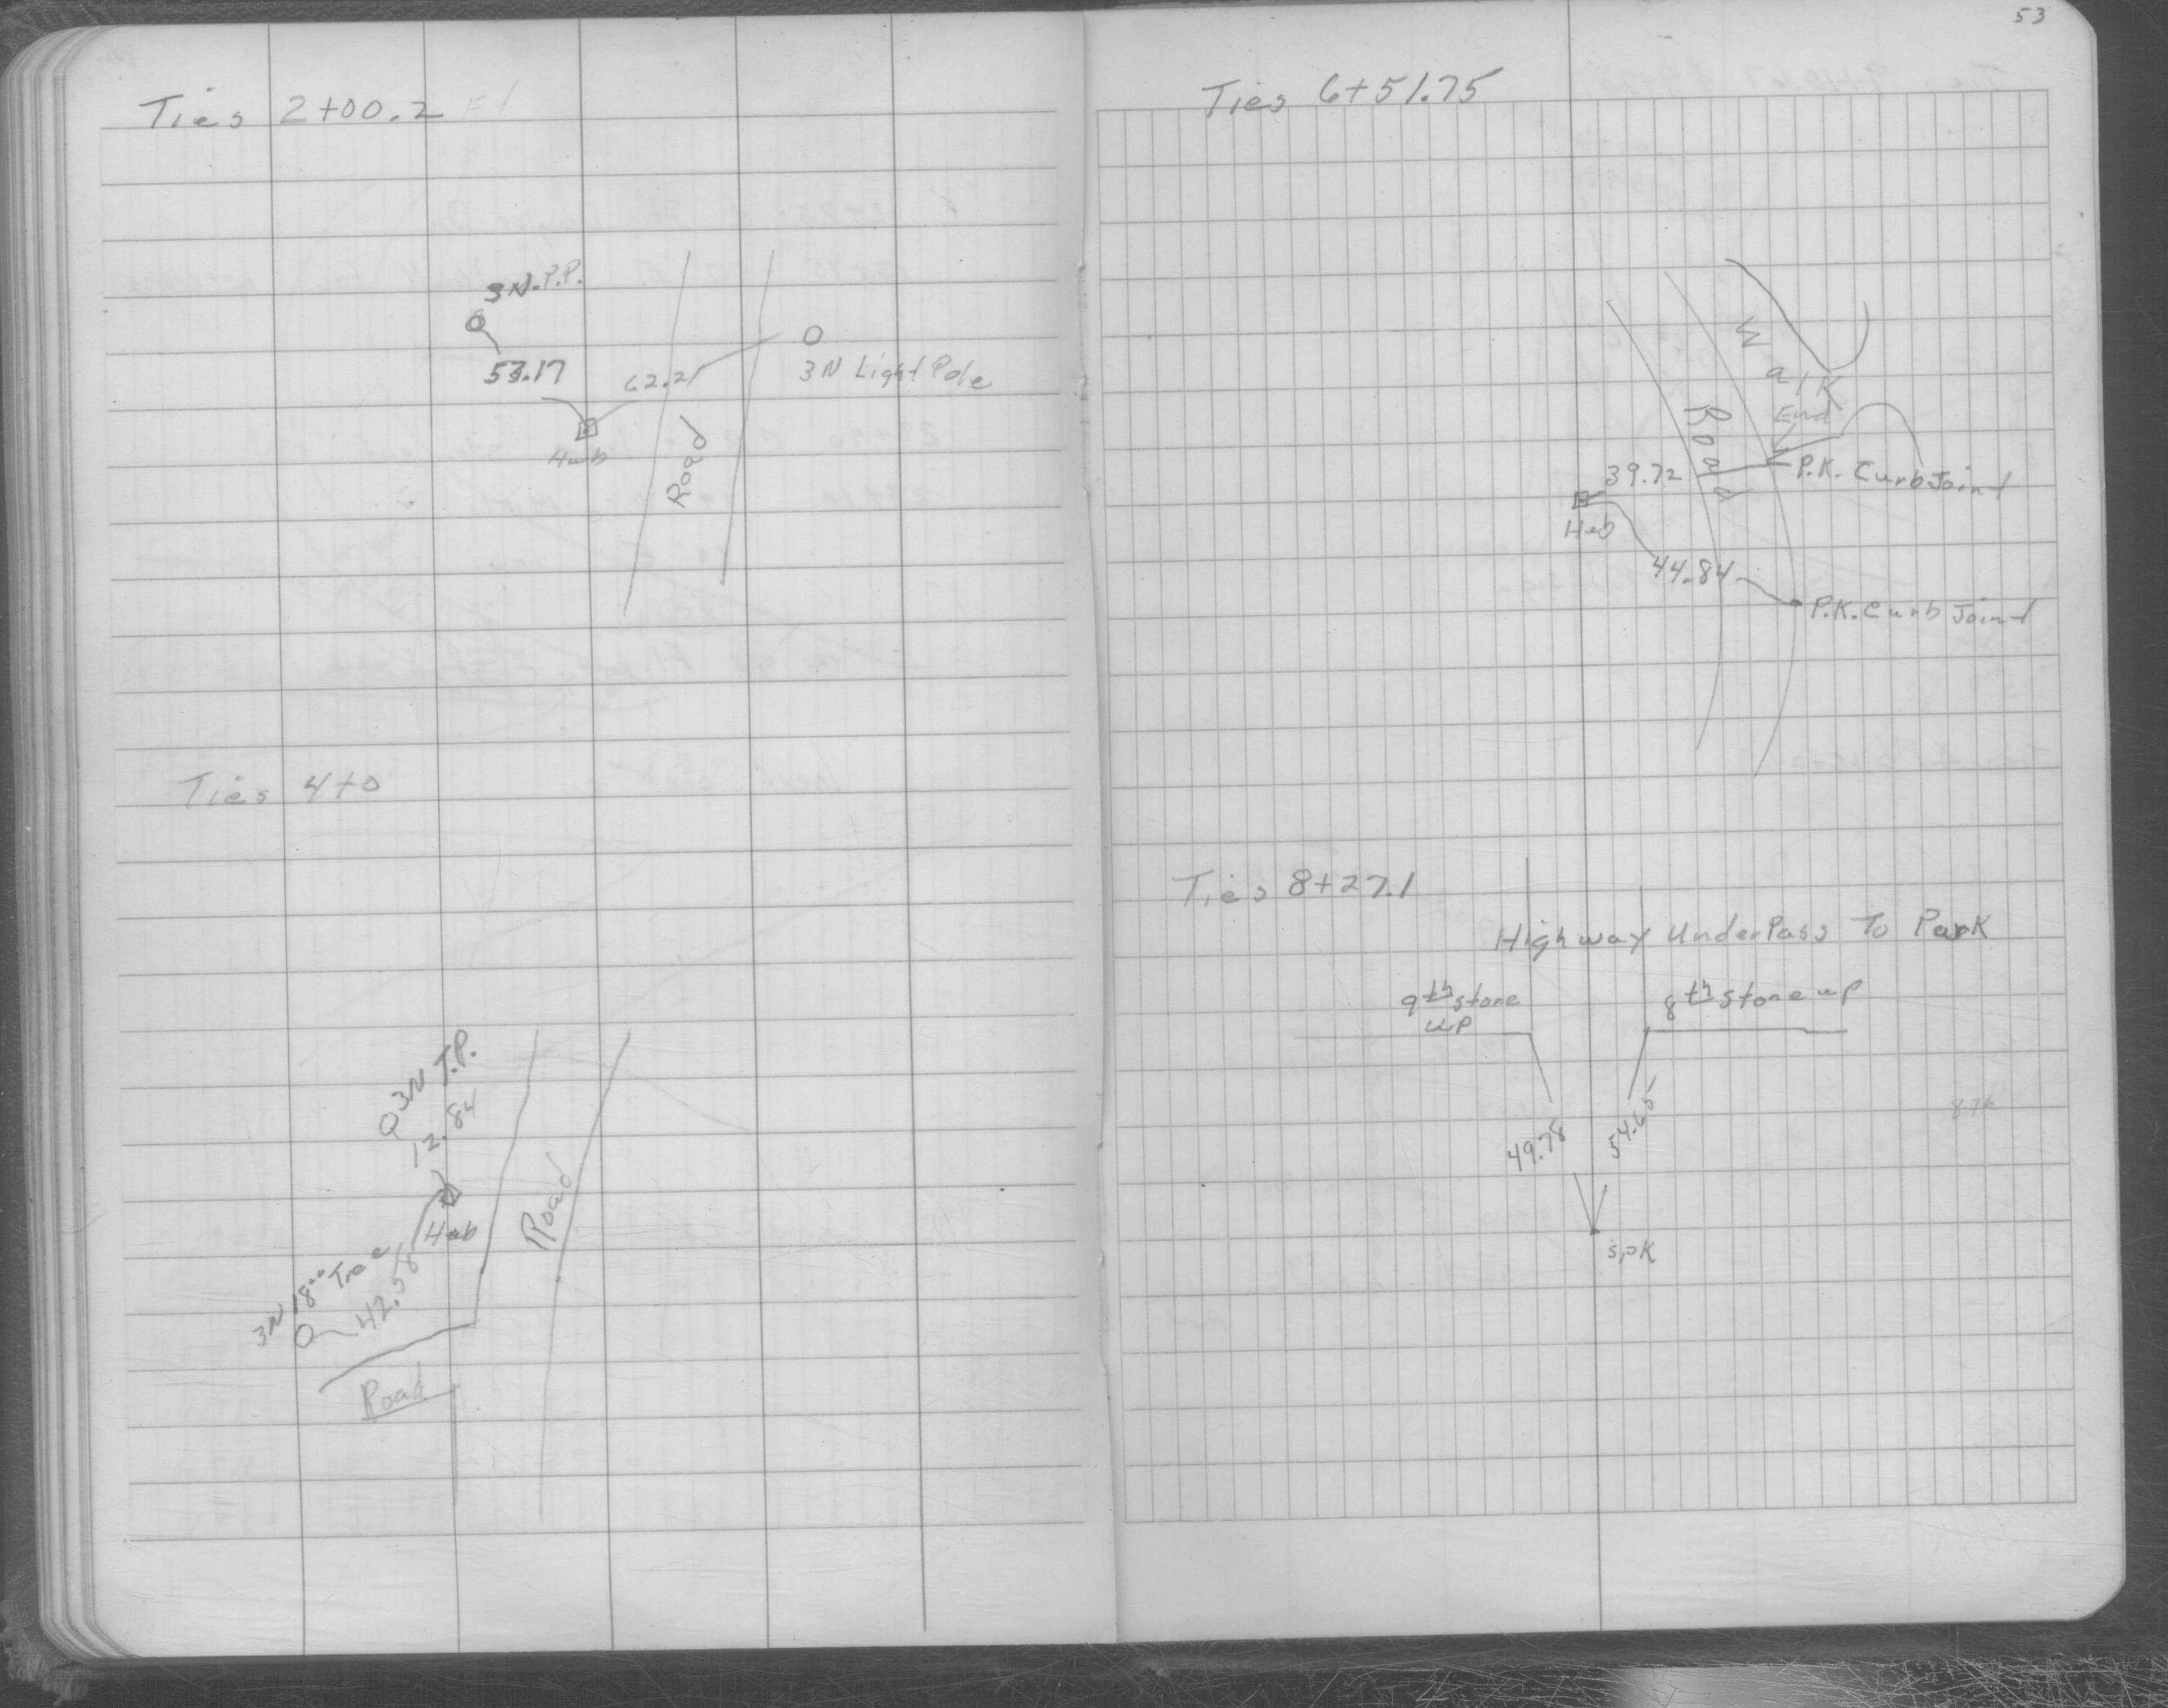 Ties 2+00.2
3N.P.P.
53.17
62.21
3N Light Pole
Hub
Road
Ties 4+0
3N T.P.
12.84
Hub
Road
3N 18" Tree
42.58
Road
53
Ties 6+51.75
Walk
End
Road
39.72
P.K. Curb Joint
Hub
44.84
P.K. Curb Joint
Ties 8+27.1
Highway UnderPass To Park
9th stone
up
8th stone up
49.78
54.65
spk